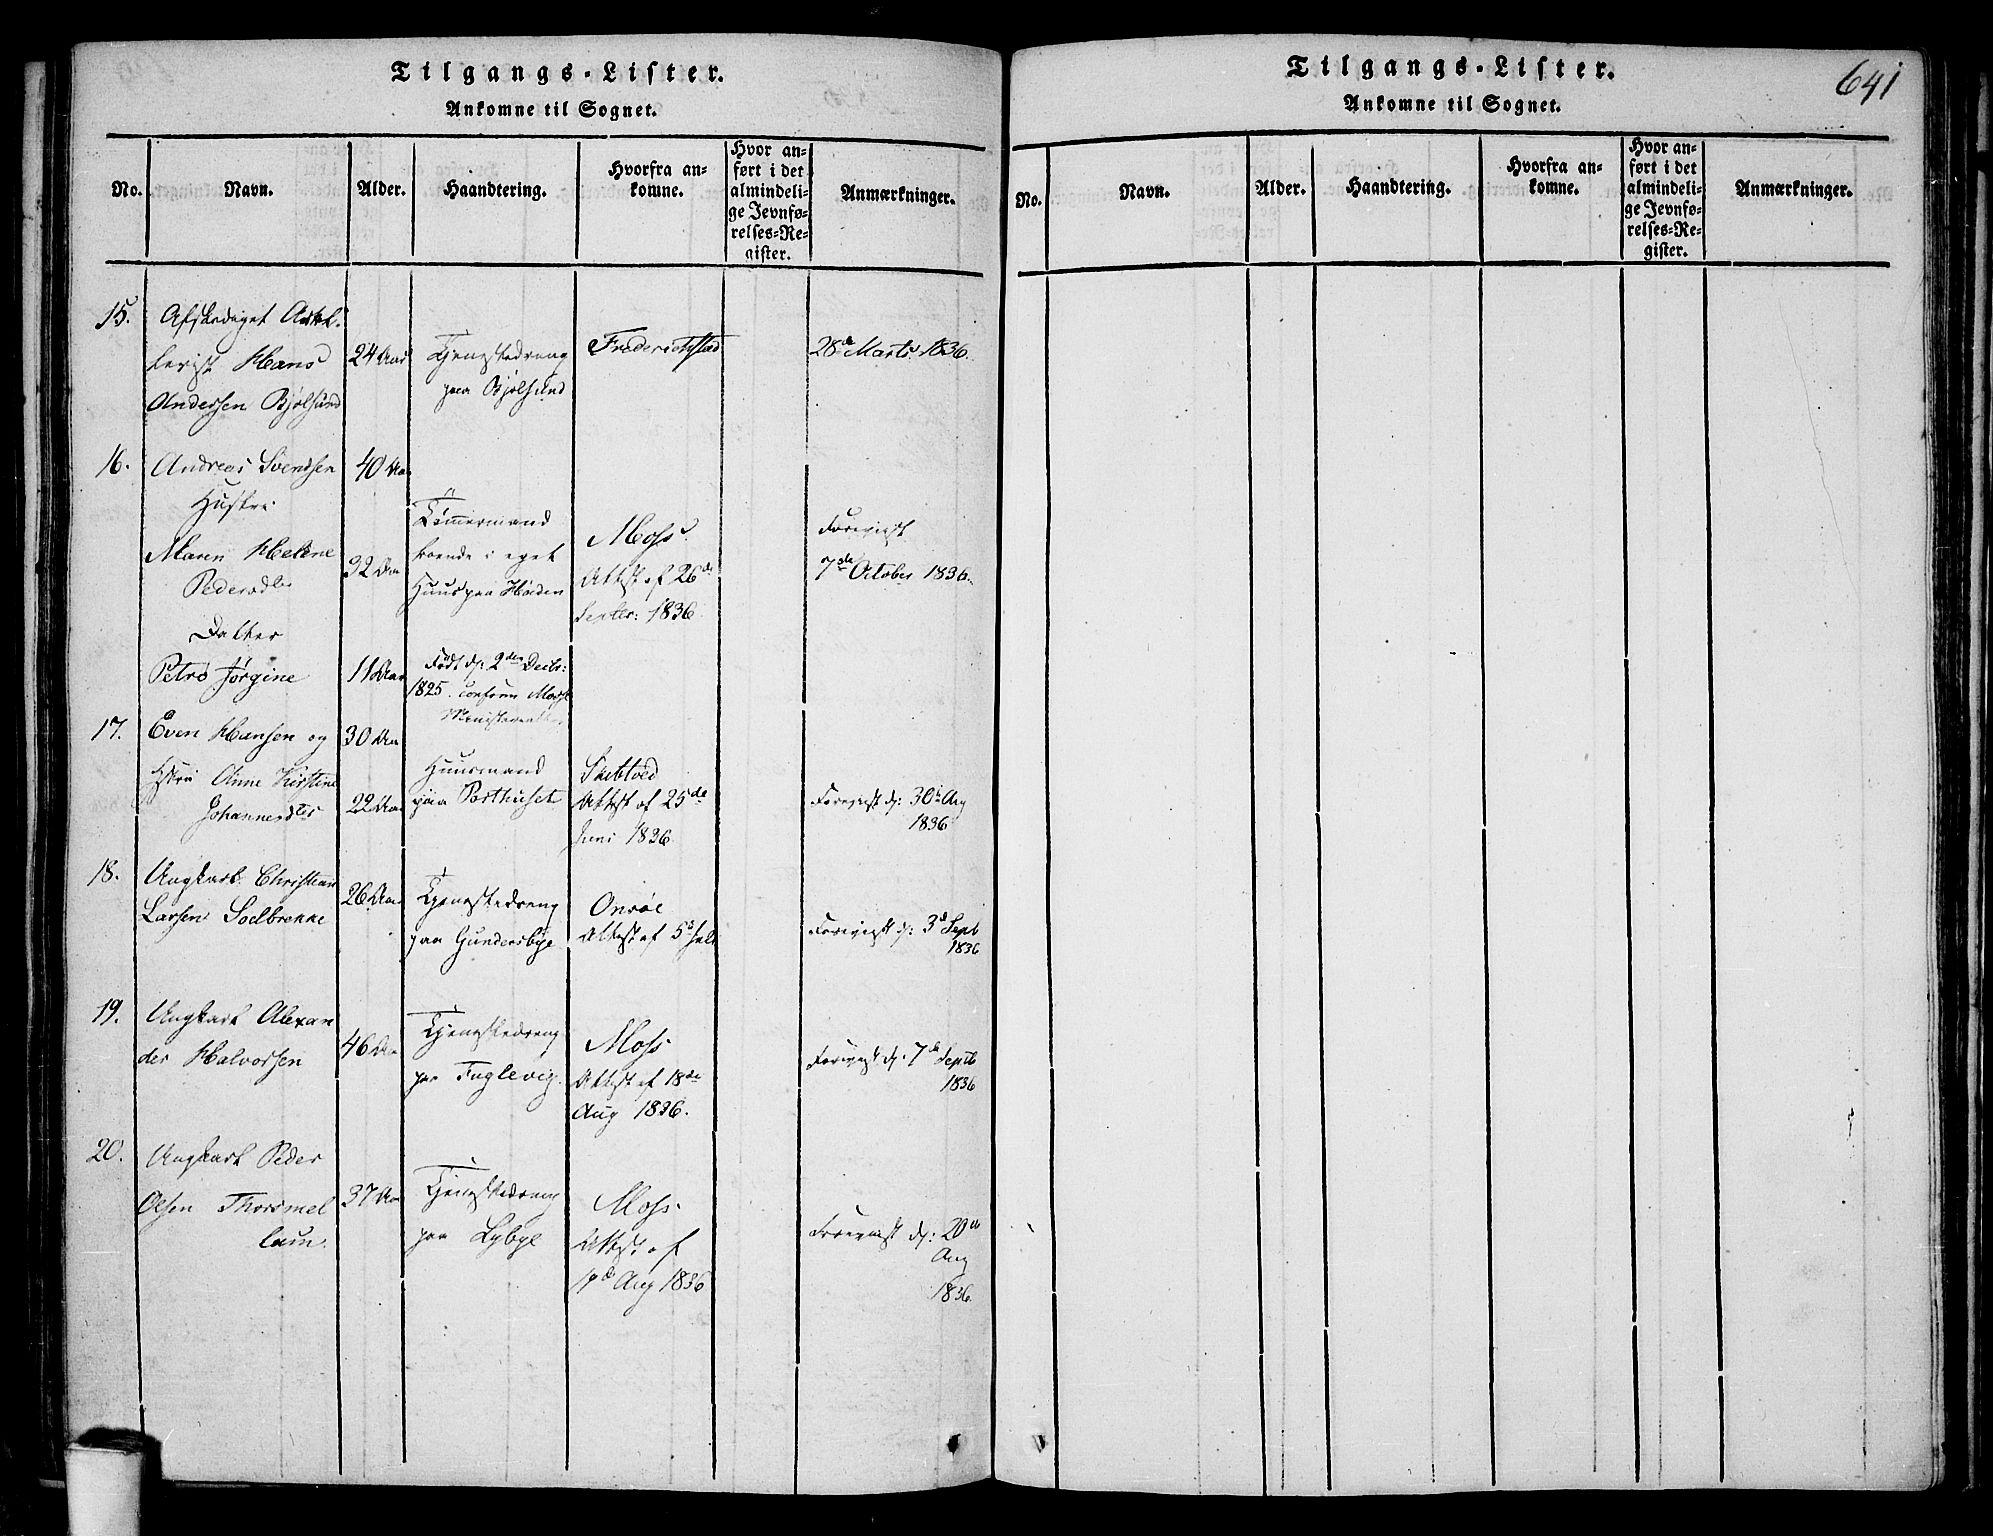 Tilgangs-Lister.
Ankomne til Sognet.
No.
Navn.
Alder.
Haandtering.
Hvorfra an-
komne.
Hvor an-
ført i det
almindeli-
ge Jevnfø-
relses-Re-
gister.
Anmærkninger.
15.
Afskediget Artil-
lerist Hans
Andersen Bjølsund
24 Aar
Tjenestedreng
paa Bjølsund
Frederichstad
28de Marts 1836.
16.
Andreas Svendsen
Hustru
Maren Helene
Pedersdtr
Datter
Petra Jørgine
40 Aar
32 Aar
11 Aar
Tømmermand
boende i eget
Huus paa Høiden
Født d: 2den Decbr:
1825. conform Mosse
Ministerial
Moss.
Attest af 26de
Septer: 1836.
Foreviist
7de October 1836.
17.
Even Hansen og
Hstru Anne Kirstine
Johannesdtr
30 Aar
22 Aar
Huusmand
paa Posthuset
Attest af 25de
Juni 1836.
Foreviist d: 30te Aug
1836
18.
Ungkarl Christian
Larsen Soelbrekke
26 Aar
Tjenestedreng
paa Gundersbye
Onsøe
Attest af 5te Juli
Foreviist d: 3d Sept
1836
19.
Ungkarl Alexan
der Halvorsen
46 Aar
Tjenestedreng
paa Fuglevig.
Moss
Attest af 18de
Aug 1836.
Foreviist d: 7de Septb
1836
20.
Ungkarl Peder
Olsen Thorsmel
lum.
37 Aar
Tjenestedreng
paa Lybye
Moss.
Attest af
Aug 1836
Foreviist d: 20de
Aug
1836.
Tilgangs-Lister.
641
Ankomne til Sognet.
No.
Navn.
Alder.
Haandtering.
Hvorfra an-
komne.
Hvor an-
ført i det
almindeli-
ge Jevnfø-
relses-Re-
gister.
Anmærkninger.